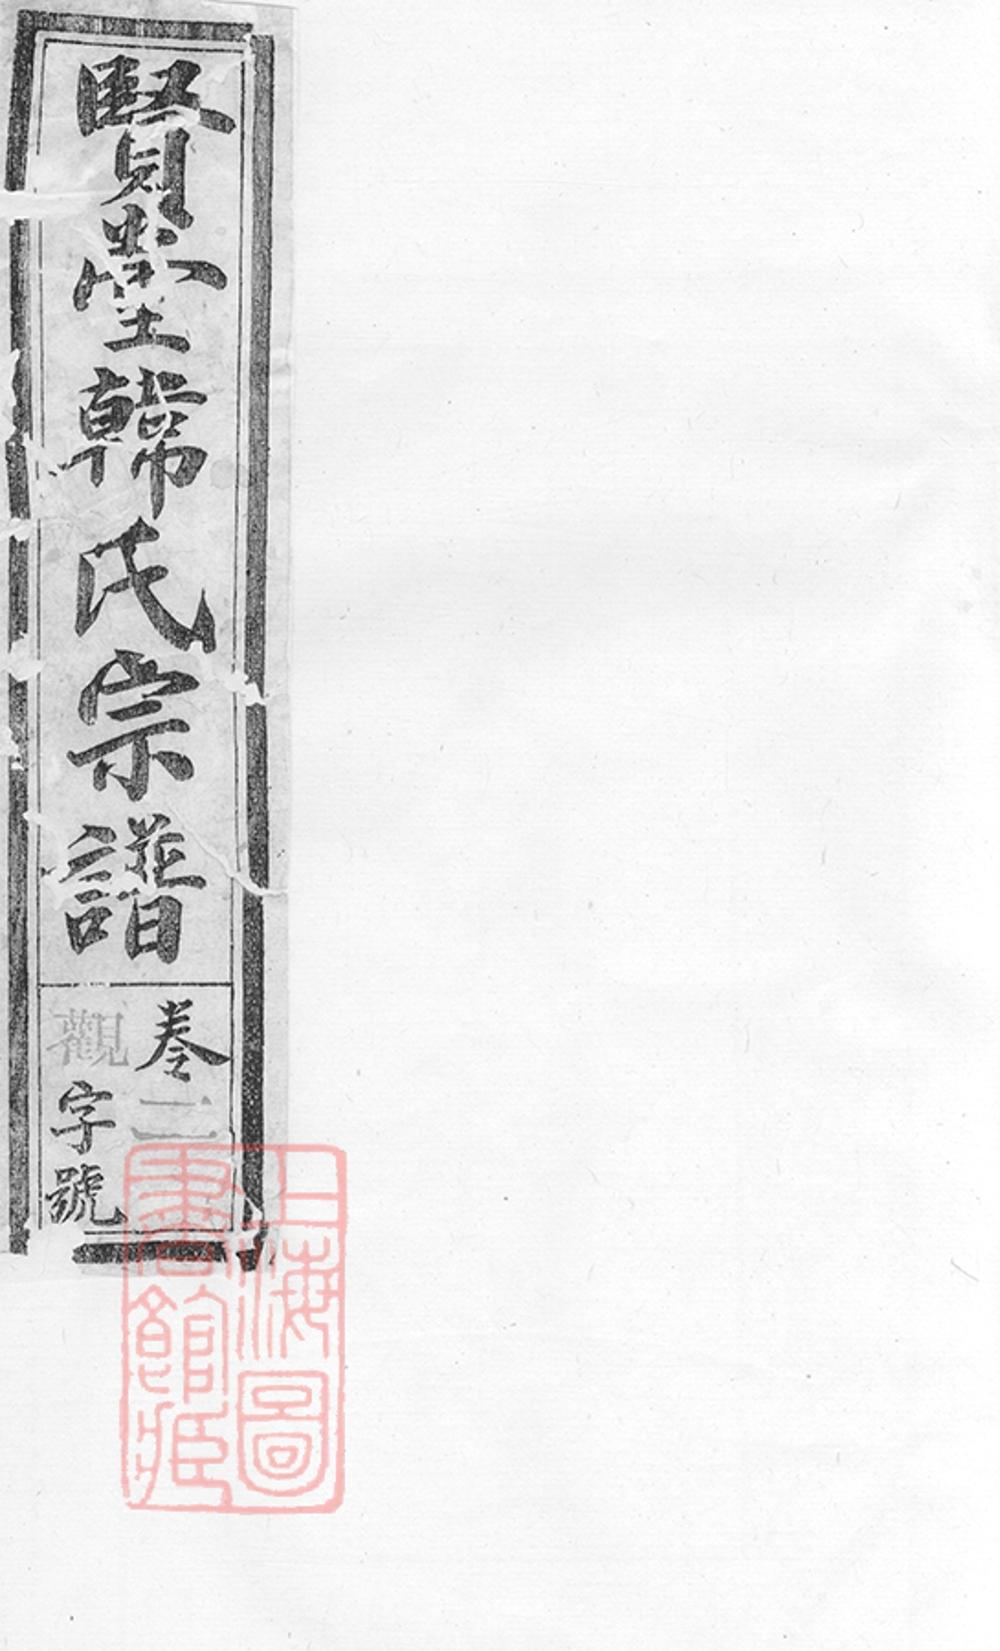 賢皇韓氏宗譜
卷二
觀字號
上海圖
書館藏